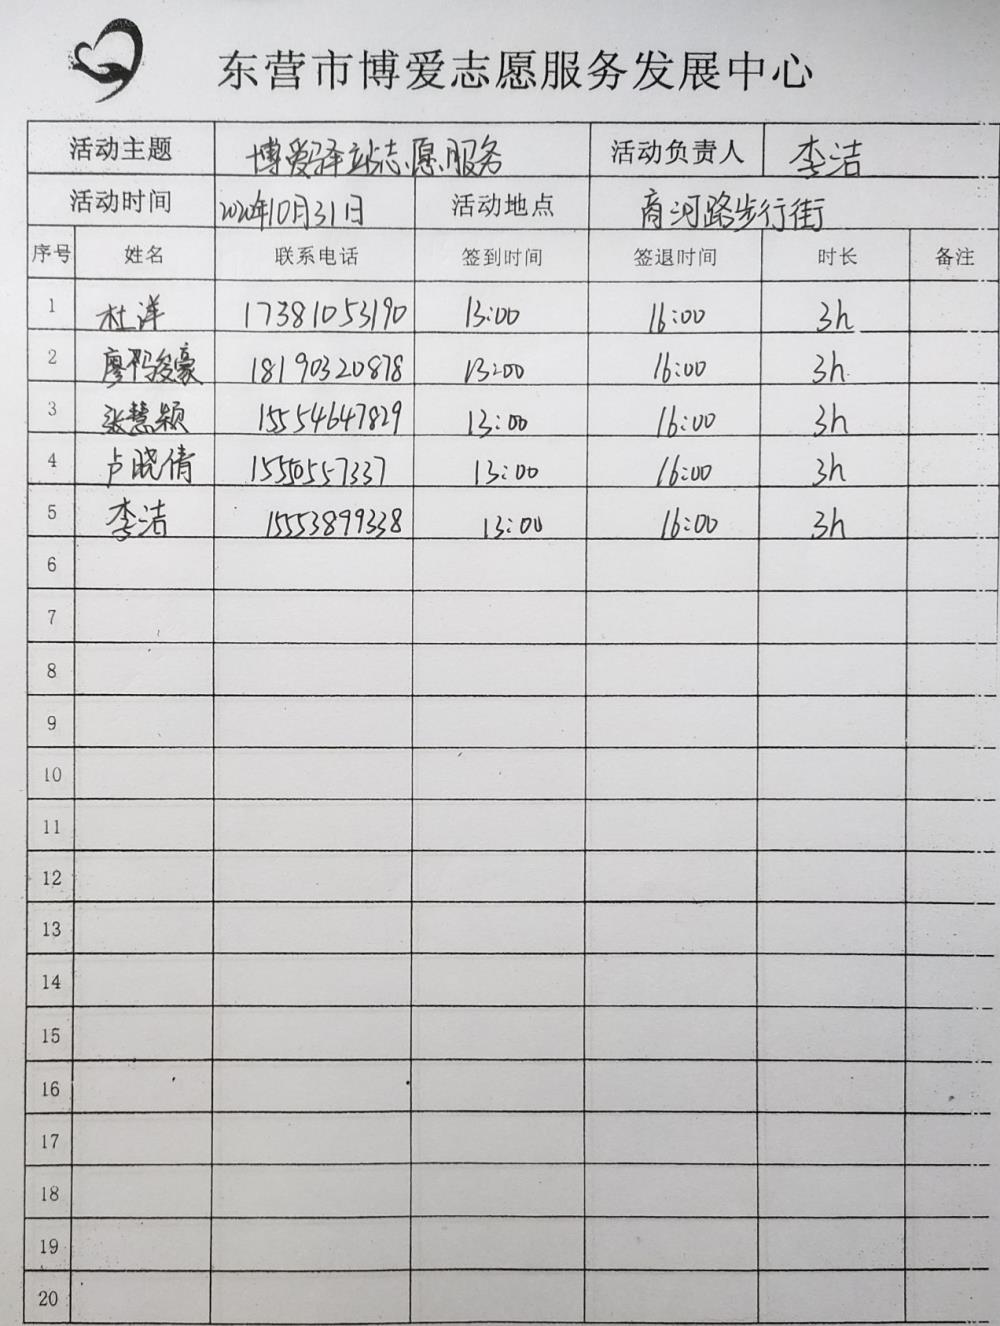 东营市博爱志愿服务发展中心
活动主题 博爱驿站志愿服务 活动负责人 李洁
活动时间 2020年10月31日 活动地点 商河路步行街
序号 姓名 联系电话 签到时间 签退时间 时长 备注
1 杜洋 17381053190 13:00 16:00 3h
2 廖 豪 18190320878 13:00 16:00 3h
3 张慧颖 15554647829 13:00 16:00 3h
4 卢晓倩 15550557337 13:00 16:00 3h
5 李洁 15553899338 13:00 16:00 3h
6
7
8
9
10
11
12
13
14
15
16
17
18
19
20